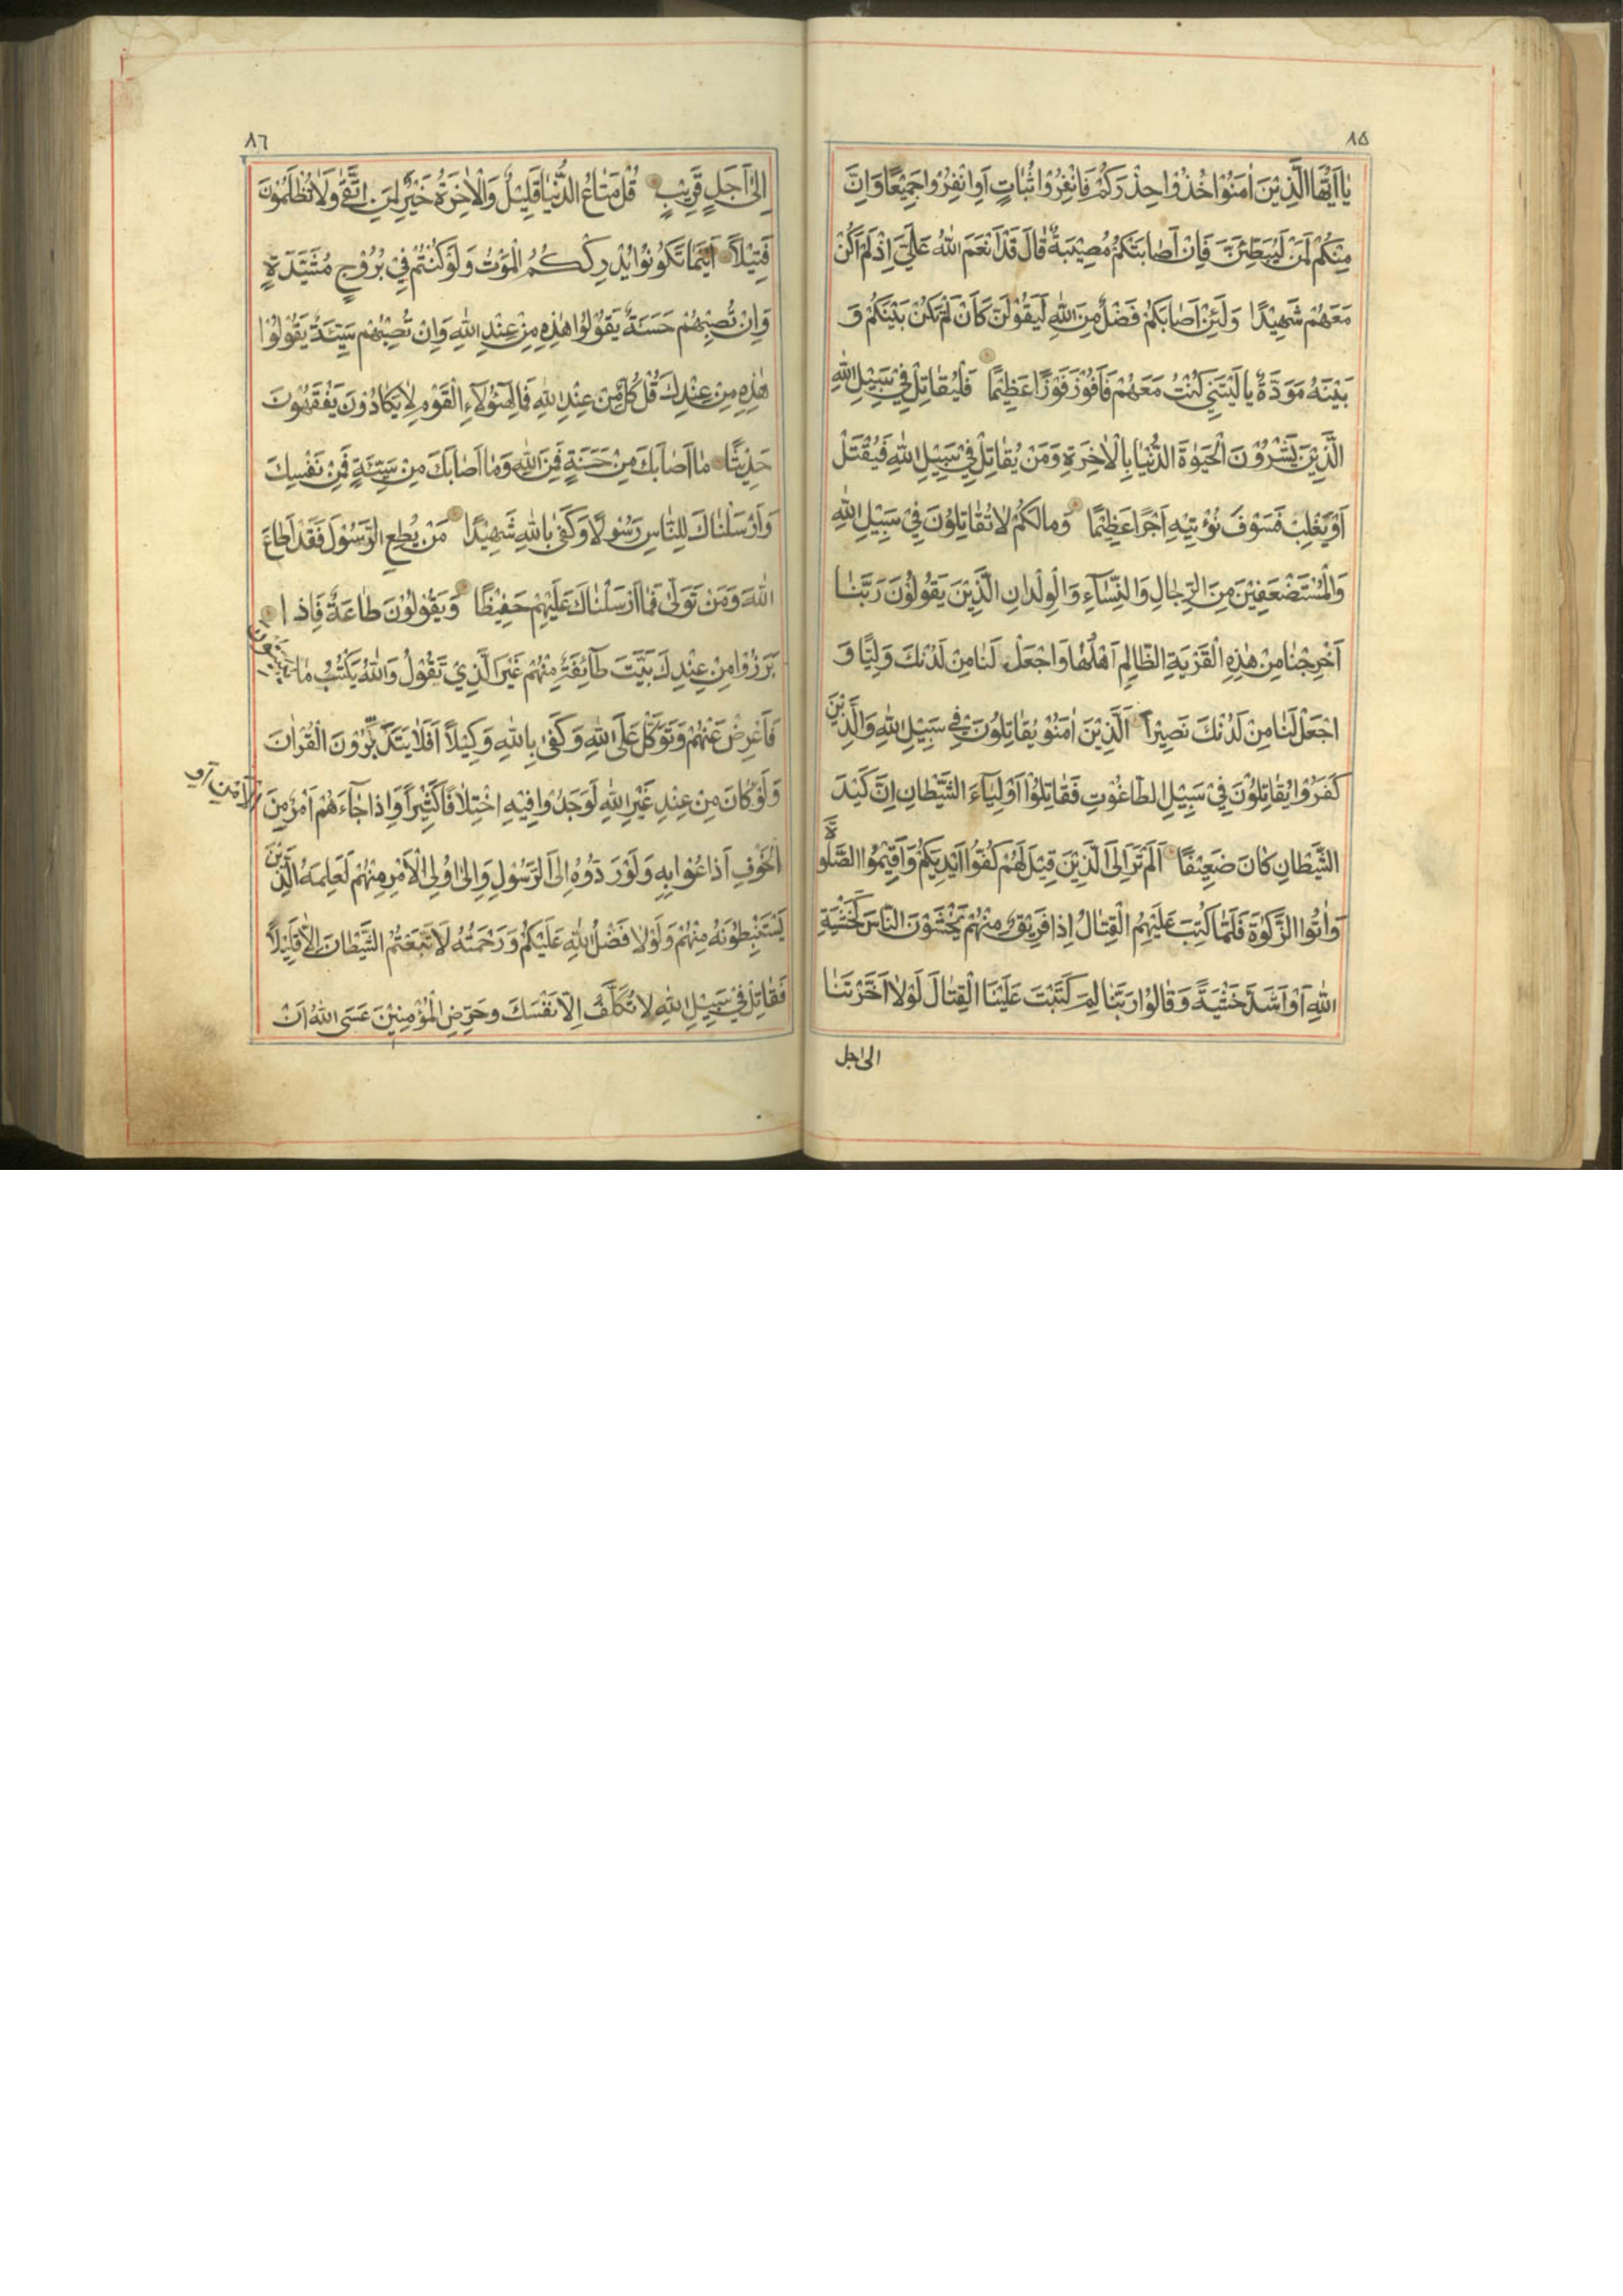 ٨٥
يٰا اَيُّهَا الَّذِيْنَ اٰمَنُوْا خُذُوْا حِذْرَكُمْ فَانْفِرُوْا ثُبَاتٍ اَوِ انْفِرُوْا جَمِيْعًا وَاِنَّ
مِنْكُمْ لَمَنْ لَيُبَطِّئَنَّ فَاِنْ اَصٰابَتْكُمْ مُصِيْبَةٌ قٰالَ قَدْ اَنْعَمَ اللّٰهُ عَلَيَّ اِذْ لَمْ اَكُنْ
مَعَهُمْ شَهِيْدًا وَلَئِنْ اَصٰابَكُمْ فَضْلٌ مِنَ اللّٰهِ لَيَقُوْلَنَّ كَاَنْ لَمْ تَكُنْ بَيْنَكُمْ وَ
بَيْنَهُ مَوَدَّةٌ يٰا لَيْتَنِي كُنْتُ مَعَهُمْ فَاَفُوْزَ فَوْزًا عَظِيْمًا فَلْيُقٰاتِلْ فِيْ سَبِيْلِ اللّٰهِ
الَّذِيْنَ يَشْرُوْنَ الْحَيٰوةَ الدُّنْيٰا بِالْاٰخِرَةِ وَمَنْ يُقٰاتِلْ فِيْ سَبِيْلِ اللّٰهِ فَيُقْتَلْ
اَوْ يَغْلِبْ فَسَوْفَ نُؤْتِيْهِ اَجْرًا عَظِيْمًا وَمٰا لَكُمْ لٰا تُقٰاتِلُوْنَ فِيْ سَبِيْلِ اللّٰهِ
وَالْمُسْتَضْعَفِيْنَ مِنَ الرِّجٰالِ وَالنِّسٰآءِ وَالْوِلْدٰانِ الَّذِيْنَ يَقُوْلُوْنَ رَبَّنٰا
اَخْرِجْنٰا مِنْ هٰذِهِ الْقَرْيَةِ الظّٰالِمِ اَهْلُهٰا وَاجْعَلْ لَنٰا مِنْ لَدُنْكَ وَلِيًّا وَ
اجْعَلْ لَنٰا مِنْ لَدُنْكَ نَصِيْرًا اَلَّذِيْنَ اٰمَنُوْ يُقٰاتِلُوْنَ فِيْ سَبِيْلِ اللّٰهِ وَالَّذِيْنَ
كَفَرُوْا يُقٰاتِلُوْنَ فِيْ سَبِيْلِ الطّٰاغُوْتِ فَقٰاتِلُوْا اَوْلِيٰآءَ الشَّيْطٰانِ اِنَّ كَيْدَ
الشَّيْطٰانِ كٰانَ ضَعِيْفًا اَلَمْ تَرَ اِلَى الَّذِيْنَ قِيْلَ لَهُمْ كُفُّوْا اَيْدِيَكُمْ وَاَقِيْمُوا الصَّلٰوةَ
وَاٰتُوا الزَّكٰوةَ فَلَمّٰا كُتِبَ عَلَيْهِمُ الْقِتٰالُ اِذٰا فَرِيْقٌ مِنْهُمْ يَخْشَوْنَ النّٰاسَ كَخَشْيَةِ
اللّٰهِ اَوْ اَشَدَّ خَشْيَةً وَقٰالُوْا رَبَّنٰا لِمَ كَتَبْتَ عَلَيْنَا الْقِتٰالَ لَوْلٰا اَخَّرْتَنٰا
الى اجل
٨٦
اِلٰى اَجَلٍ قَرِيْبٍ قُلْ مَتٰاعُ الدُّنْيٰا قَلِيْلٌ وَالْاٰخِرَةُ خَيْرٌ لِمَنِ اتَّقٰى وَلٰا تُظْلَمُوْنَ
فَتِيْلًا اَيْنَمٰا تَكُوْنُوْا يُدْرِكْكُمُ الْمَوْتُ وَلَوْ كُنْتُمْ فِيْ بُرُوْجٍ مُشَيَّدَةٍ
وَاِنْ تُصِبْهُمْ حَسَنَةٌ يَقُوْلُوْا هٰذِهِ مِنْ عِنْدِ اللّٰهِ وَاِنْ تُصِبْهُمْ سَيِّئَةٌ يَقُوْلُوْا
هٰذِهِ مِنْ عِنْدِكَ قُلْ كُلٌّ مِنْ عِنْدِ اللّٰهِ فَمٰالِ هٰٓؤُلٰآءِ الْقَوْمِ لٰا يَكٰادُوْنَ يَفْقَهُوْنَ
حَدِيْثًا مٰا اَصٰابَكَ مِنْ حَسَنَةٍ فَمِنَ اللّٰهِ وَمٰا اَصٰابَكَ مِنْ سَيِّئَةٍ فَمِنْ نَفْسِكَ
وَاَرْسَلْنٰاكَ لِلنّٰاسِ رَسُوْلًا وَكَفٰى بِاللّٰهِ شَهِيْدًا مَنْ يُطِعِ الرَّسُوْلَ فَقَدْ اَطٰاعَ
اللّٰهَ وَمَنْ تَوَلّٰى فَمٰا اَرْسَلْنٰاكَ عَلَيْهِمْ حَفِيْظًا وَيَقُوْلُوْنَ طٰاعَةٌ فَاِذٰا
بَرَزُوْا مِنْ عِنْدِكَ بَيَّتَ طٰآئِفَةٌ مِنْهُمْ غَيْرَ الَّذِيْ تَقُوْلُ وَاللّٰهُ يَكْتُبُ مٰا يُبَيِّتُوْنَ
فَاَعْرِضْ عَنْهُمْ وَتَوَكَّلْ عَلَى اللّٰهِ وَكَفٰى بِاللّٰهِ وَكِيْلًا اَفَلٰا يَتَدَبَّرُوْنَ الْقُرْاٰنَ
وَلَوْ كٰانَ مِنْ عِنْدِ غَيْرِ اللّٰهِ لَوَجَدُوْا فِيْهِ اخْتِلٰافًا كَثِيْرًا وَاِذٰا جٰآءَهُمْ اَمْرٌ مِنَ
الْاَمْنِ اَوِ
الْخَوْفِ اَذٰاعُوْا بِهِ وَلَوْ رَدُّوْهُ اِلَى الرَّسُوْلِ وَاِلٰى اُولِى الْاَمْرِ مِنْهُمْ لَعَلِمَهُ الَّذِيْنَ
يَسْتَنْبِطُوْنَهُ مِنْهُمْ وَلَوْلٰا فَضْلُ اللّٰهِ عَلَيْكُمْ وَرَحْمَتُهُ لَاتَّبَعْتُمُ الشَّيْطٰانَ اِلّٰا قَلِيْلًا
فَقٰاتِلْ فِيْ سَبِيْلِ اللّٰهِ لٰا تُكَلَّفُ اِلّٰا نَفْسَكَ وَحَرِّضِ الْمُؤْمِنِيْنَ عَسَى اللّٰهُ اَنْ